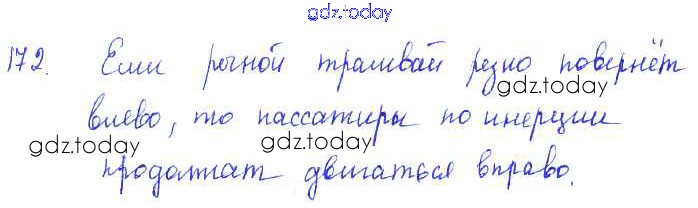 gdz.today
172. Если речной трамвай резко повернёт
gdz.today
влево, то пассажиры по инерции
gdz.today gdz.today
продолжат двигаться вправо.